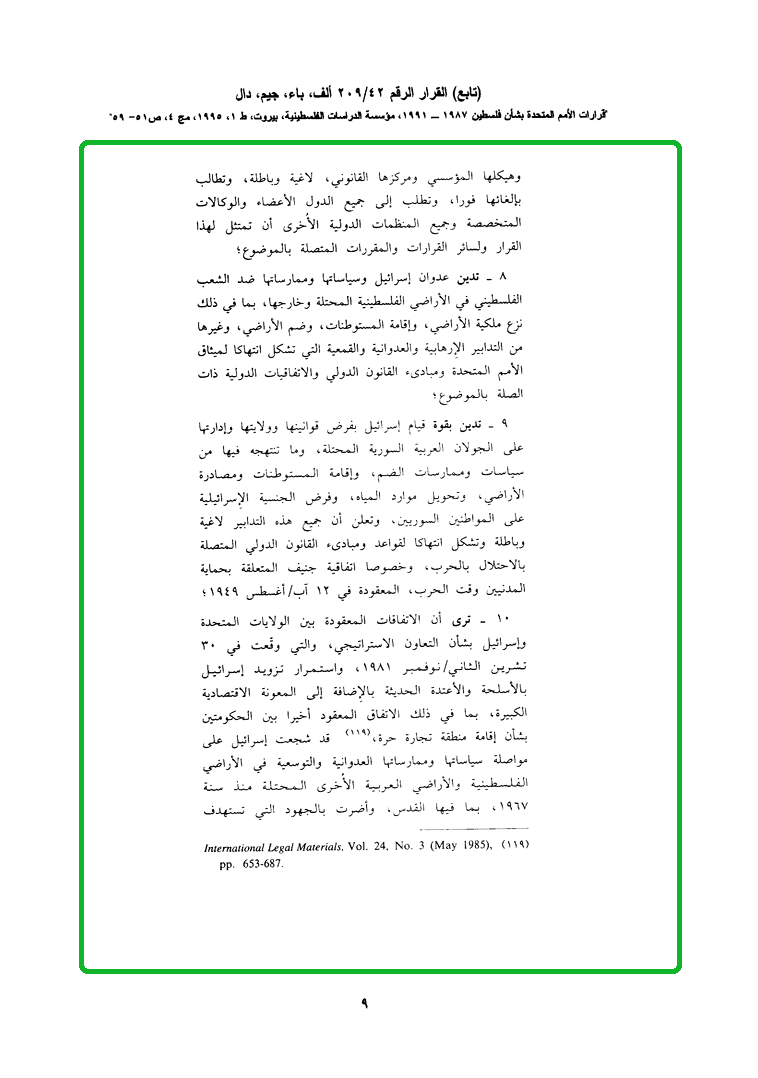 (تابع) القرار الرقم ٢٠٩/٤٢ ألف، باء، جيم، دال
"قرارات الأمم المتحدة بشأن فلسطين ١٩٨٧ ــ ١٩٩١، مؤسسة الدراسات الفلسطينية، بيروت، ط ١، ١٩٩٥، مج ٤، ص٥١- ٥٩"
وهيكلها المؤسسي ومركزها القانوني، لاغية وباطلة، وتطالب
بإلغائها فورا، وتطلب إلى جميع الدول الأعضاء والوكالات
المتخصصة وجميع المنظمات الدولية الأخرى أن تمتثل لهذا
القرار ولسائر القرارات والمقررات المتصلة بالموضوع؛
٨ ـ تدين عدوان إسرائيل وسياساتها وممارساتها ضد الشعب
الفلسطيني في الأراضي الفلسطينية المحتلة وخارجها، بما في ذلك
نزع ملكية الأراضي، وإقامة المستوطنات، وضم الأراضي، وغيرها
من التدابير الإرهابية والعدوانية والقمعية التي تشكل انتهاكا لميثاق
الأمم المتحدة ومبادىء القانون الدولي والاتفاقيات الدولية ذات
الصلة بالموضوع؛
٩ ـ تدين بقوة قيام إسرائيل بفرض قوانينها وولايتها وإدارتها
على الجولان العربية السورية المحتلة، وما تنتهجه فيها من
سياسات وممارسات الضم، وإقامة المستوطنات ومصادرة
الأراضي، وتحويل موارد المياه، وفرض الجنسية الإسرائيلية
على المواطنين السوريين، وتعلن أن جميع هذه التدابير لاغية
وباطلة وتشكل انتهاكا لقواعد ومبادىء القانون الدولي المتصلة
بالاحتلال بالحرب، وخصوصا اتفاقية جنيف المتعلقة بحماية
المدنيين وقت الحرب، المعقودة في ١٢ آب/أغسطس ١٩٤٩؛
١٠ ـ ترى أن الاتفاقات المعقودة بين الولايات المتحدة
وإسرائيل بشأن التعاون الاستراتيجي، والتي وقّعت في ٣٠
تشرين الثاني/نوفمبر ١٩٨١، واستمرار تزويد إسرائيل
بالأسلحة والأعتدة الحديثة بالإضافة إلى المعونة الاقتصادية
الكبيرة، بما في ذلك الاتفاق المعقود أخيرا بين الحكومتين
بشأن إقامة منطقة تجارة حرة،(١١٩) قد شجعت إسرائيل على
مواصلة سياساتها وممارساتها العدوانية والتوسعية في الأراضي
الفلسطينية والأراضي العربية الأخرى المحتلة منذ سنة
١٩٦٧، بما فيها القدس، وأضرت بالجهود التي تستهدف
International Legal Materials, Vol. 24, No. 3 (May 1985), (١١٩)
pp. 653-687.
٩